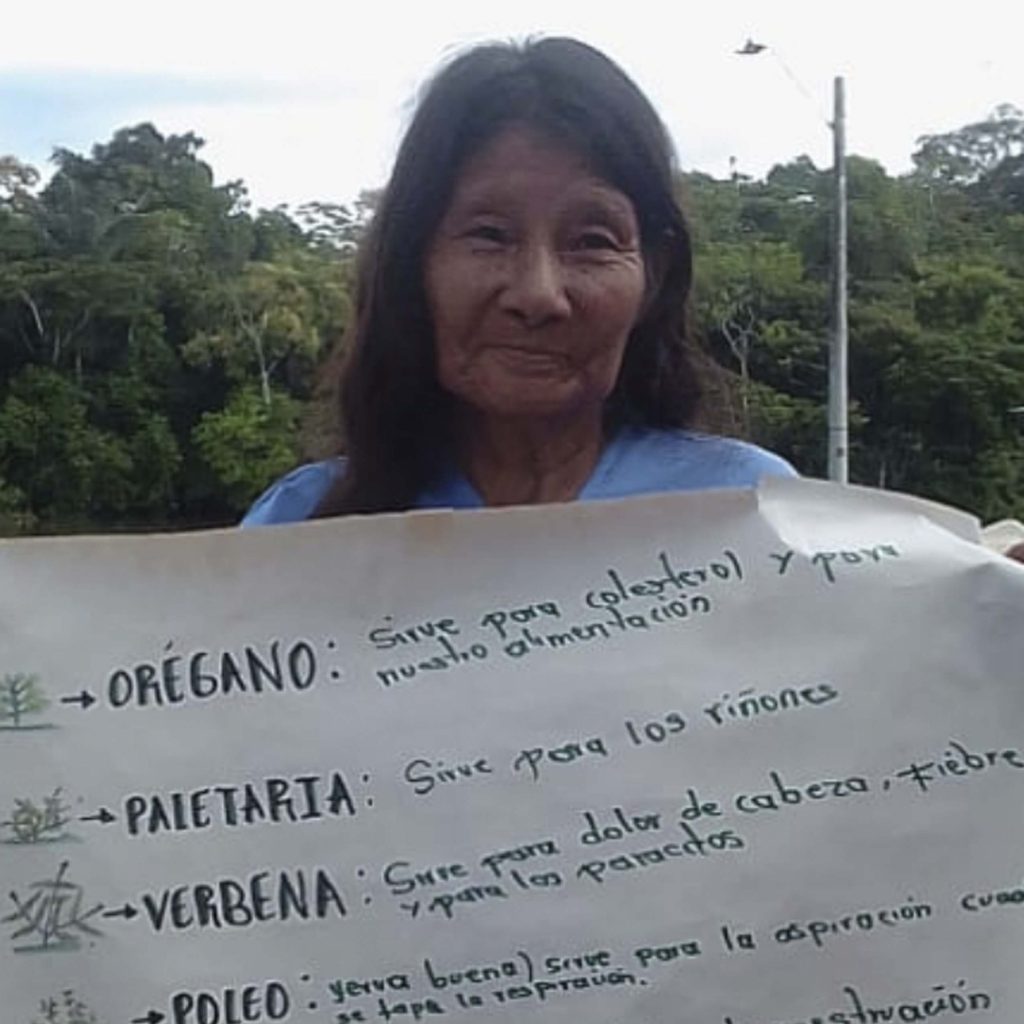 → ORÉGANO: Sirve para colesterol y para
nuestro alimentación
→ PALETARIA: Sirve para los riñones
→ VERBENA: Sirve para dolor de cabeza, fiebre
y para los paracitos
→ POLEO: yerva buena) sirve para la aspiración
se tapa la respiración.